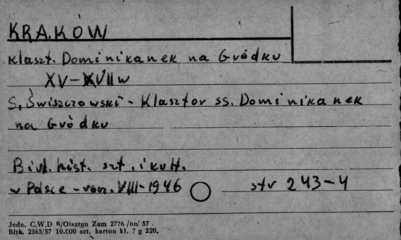 KRAKÓW
Klaszt. Dominikanek na Gródku
XV-XVII w
S. Świszczowski - Klasztor ss. Dominikanek
na Gródku
Biul. hist. szt. i kult.
w Polsce - rocz. VIII-1946 str 243-4
Jedn. C.W.D 8/Olsztyn Zam 2776 /on/ 57
Blth. 2563/57 10.000 szt. karton kl. 7 g 220.